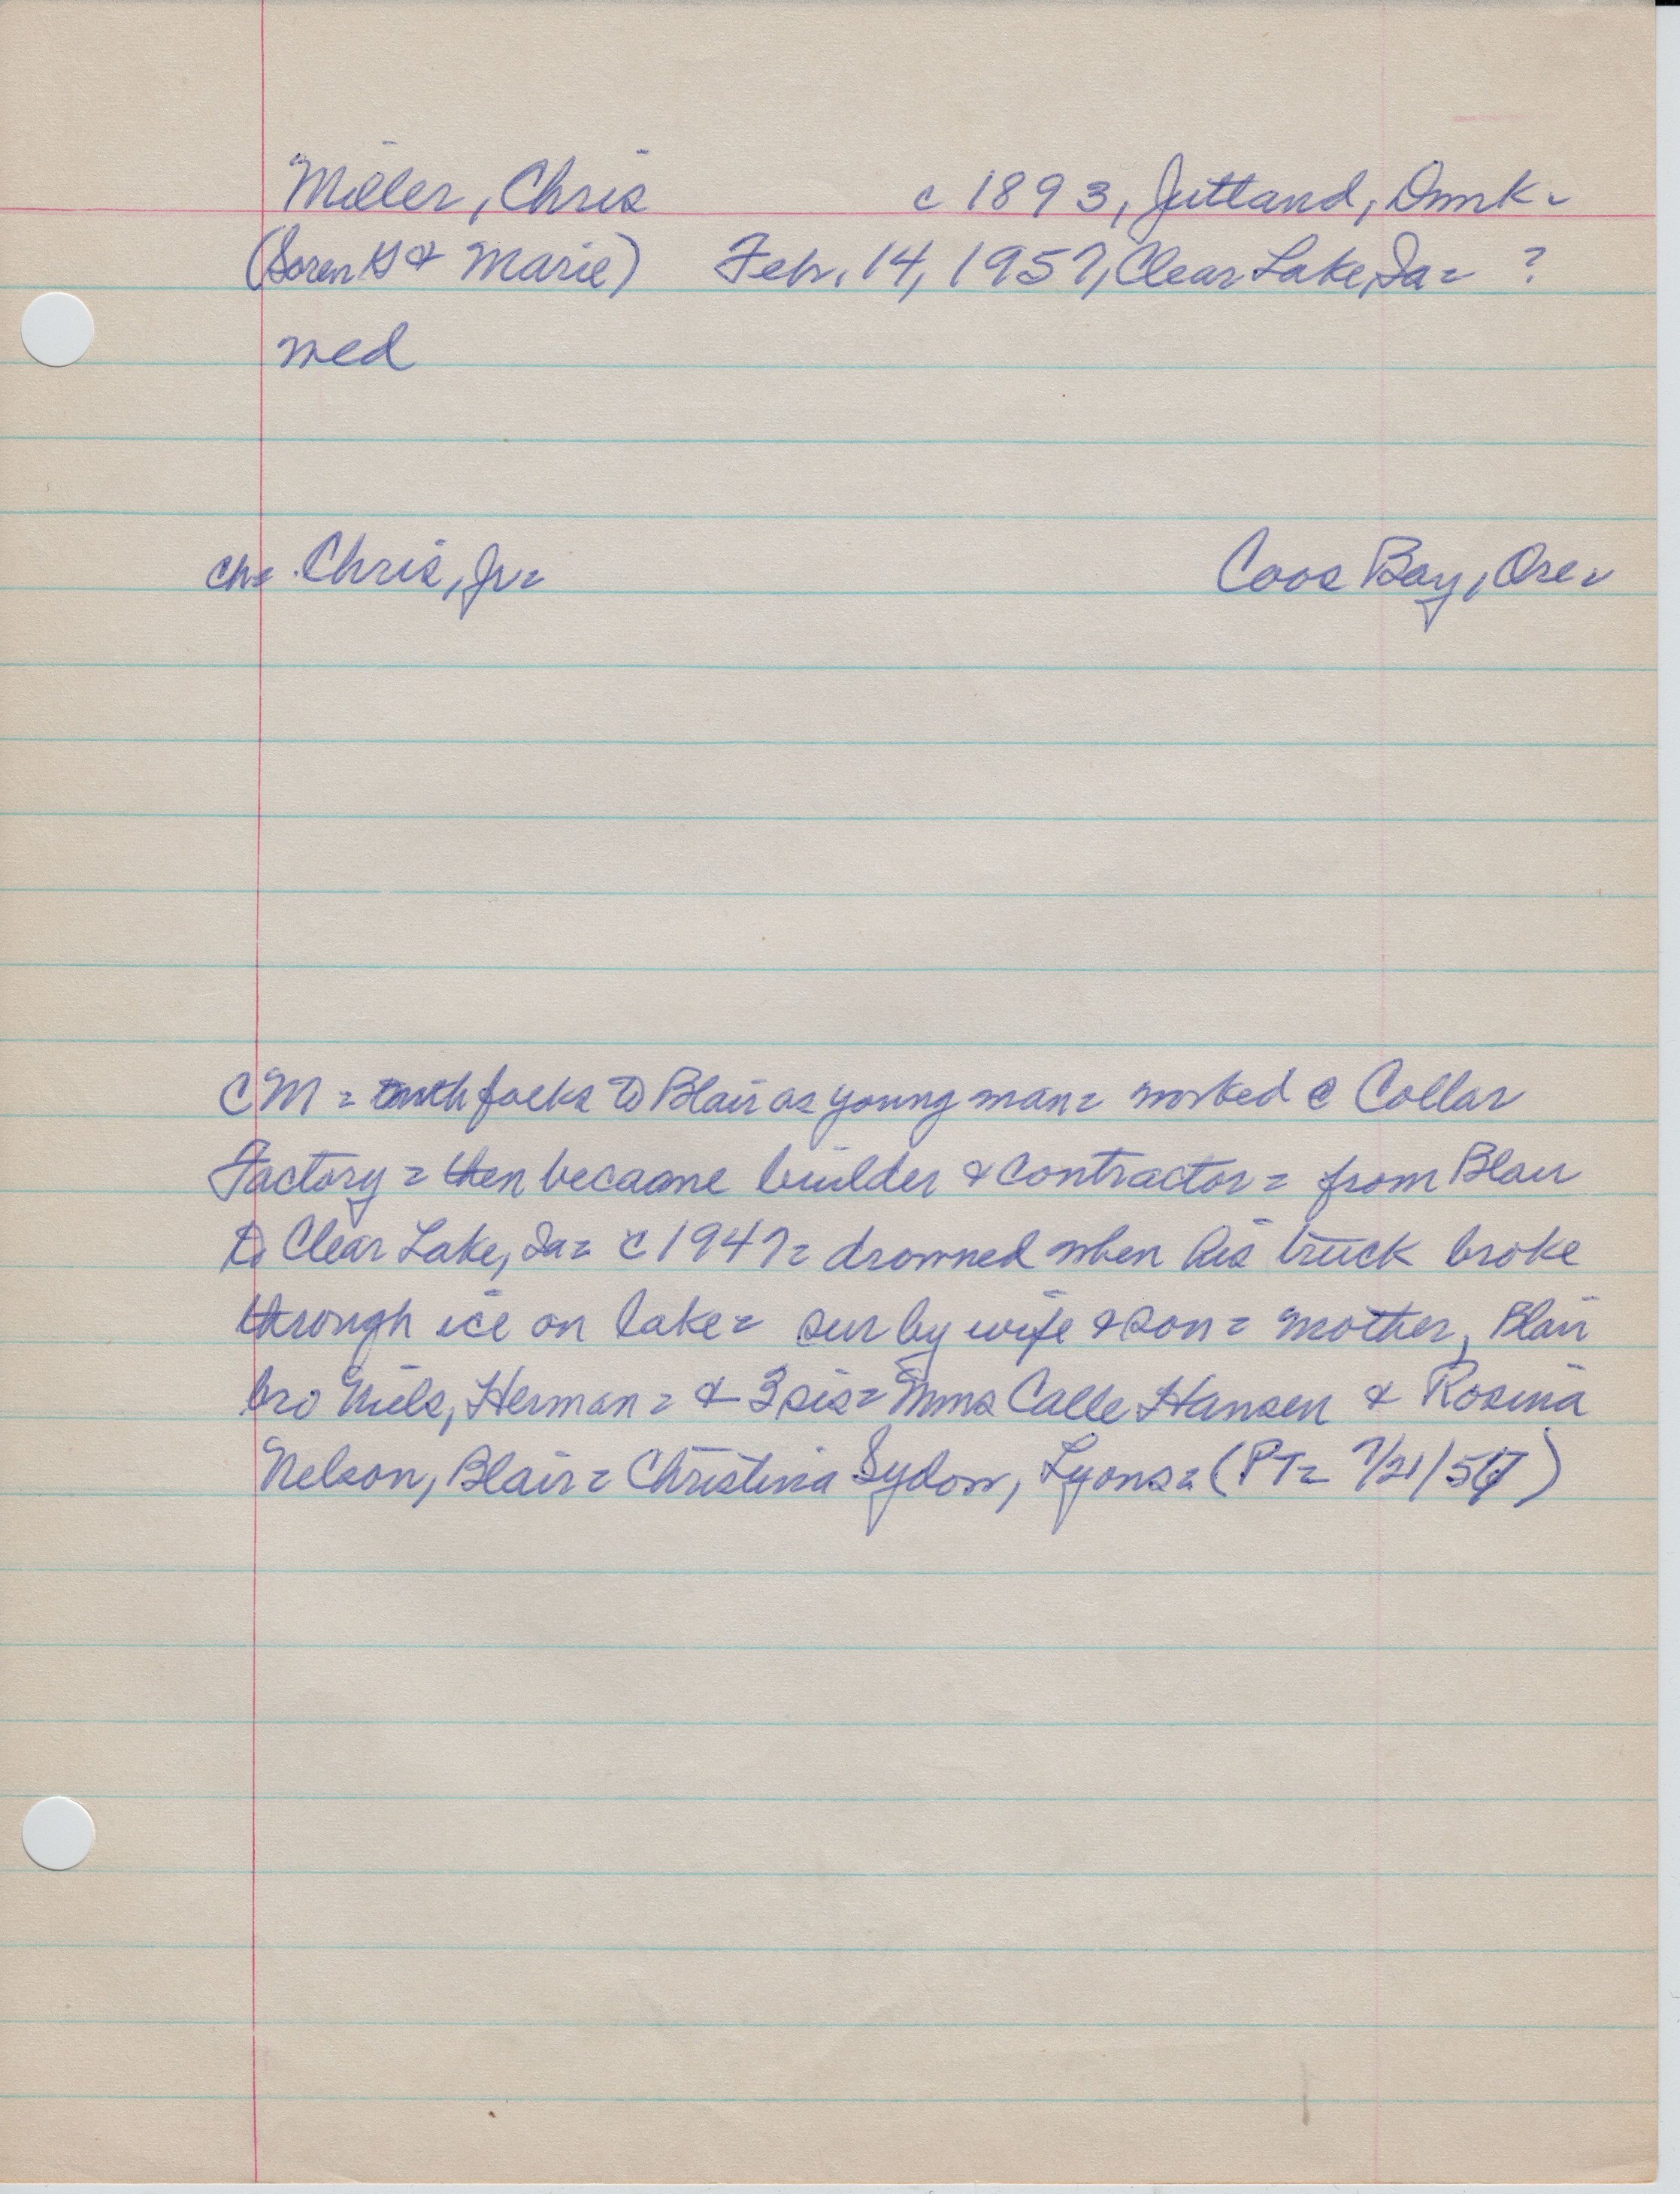 Miller, Chris c 1893, Jutland, Dmk=
(Soren & Marie) Feb. 14, 1957, Clear Lake, Ia= ?
med
ch= Chris, Jr= Coos Bay, Ore=
CM = with folks to Blair as young man= worked @ Collar
Factory = then becaome builder & contractor = from Blair
to Clear Lake, Ia= c 1947= drowned when his truck broke
through ice on lake= sur by wife & son= mother, Blair
bro Niels, Herman= & 3 sis= Mms Calle Hansen & Rosina
Nelson, Blair= Christina Sydow, Lyons= (PT=